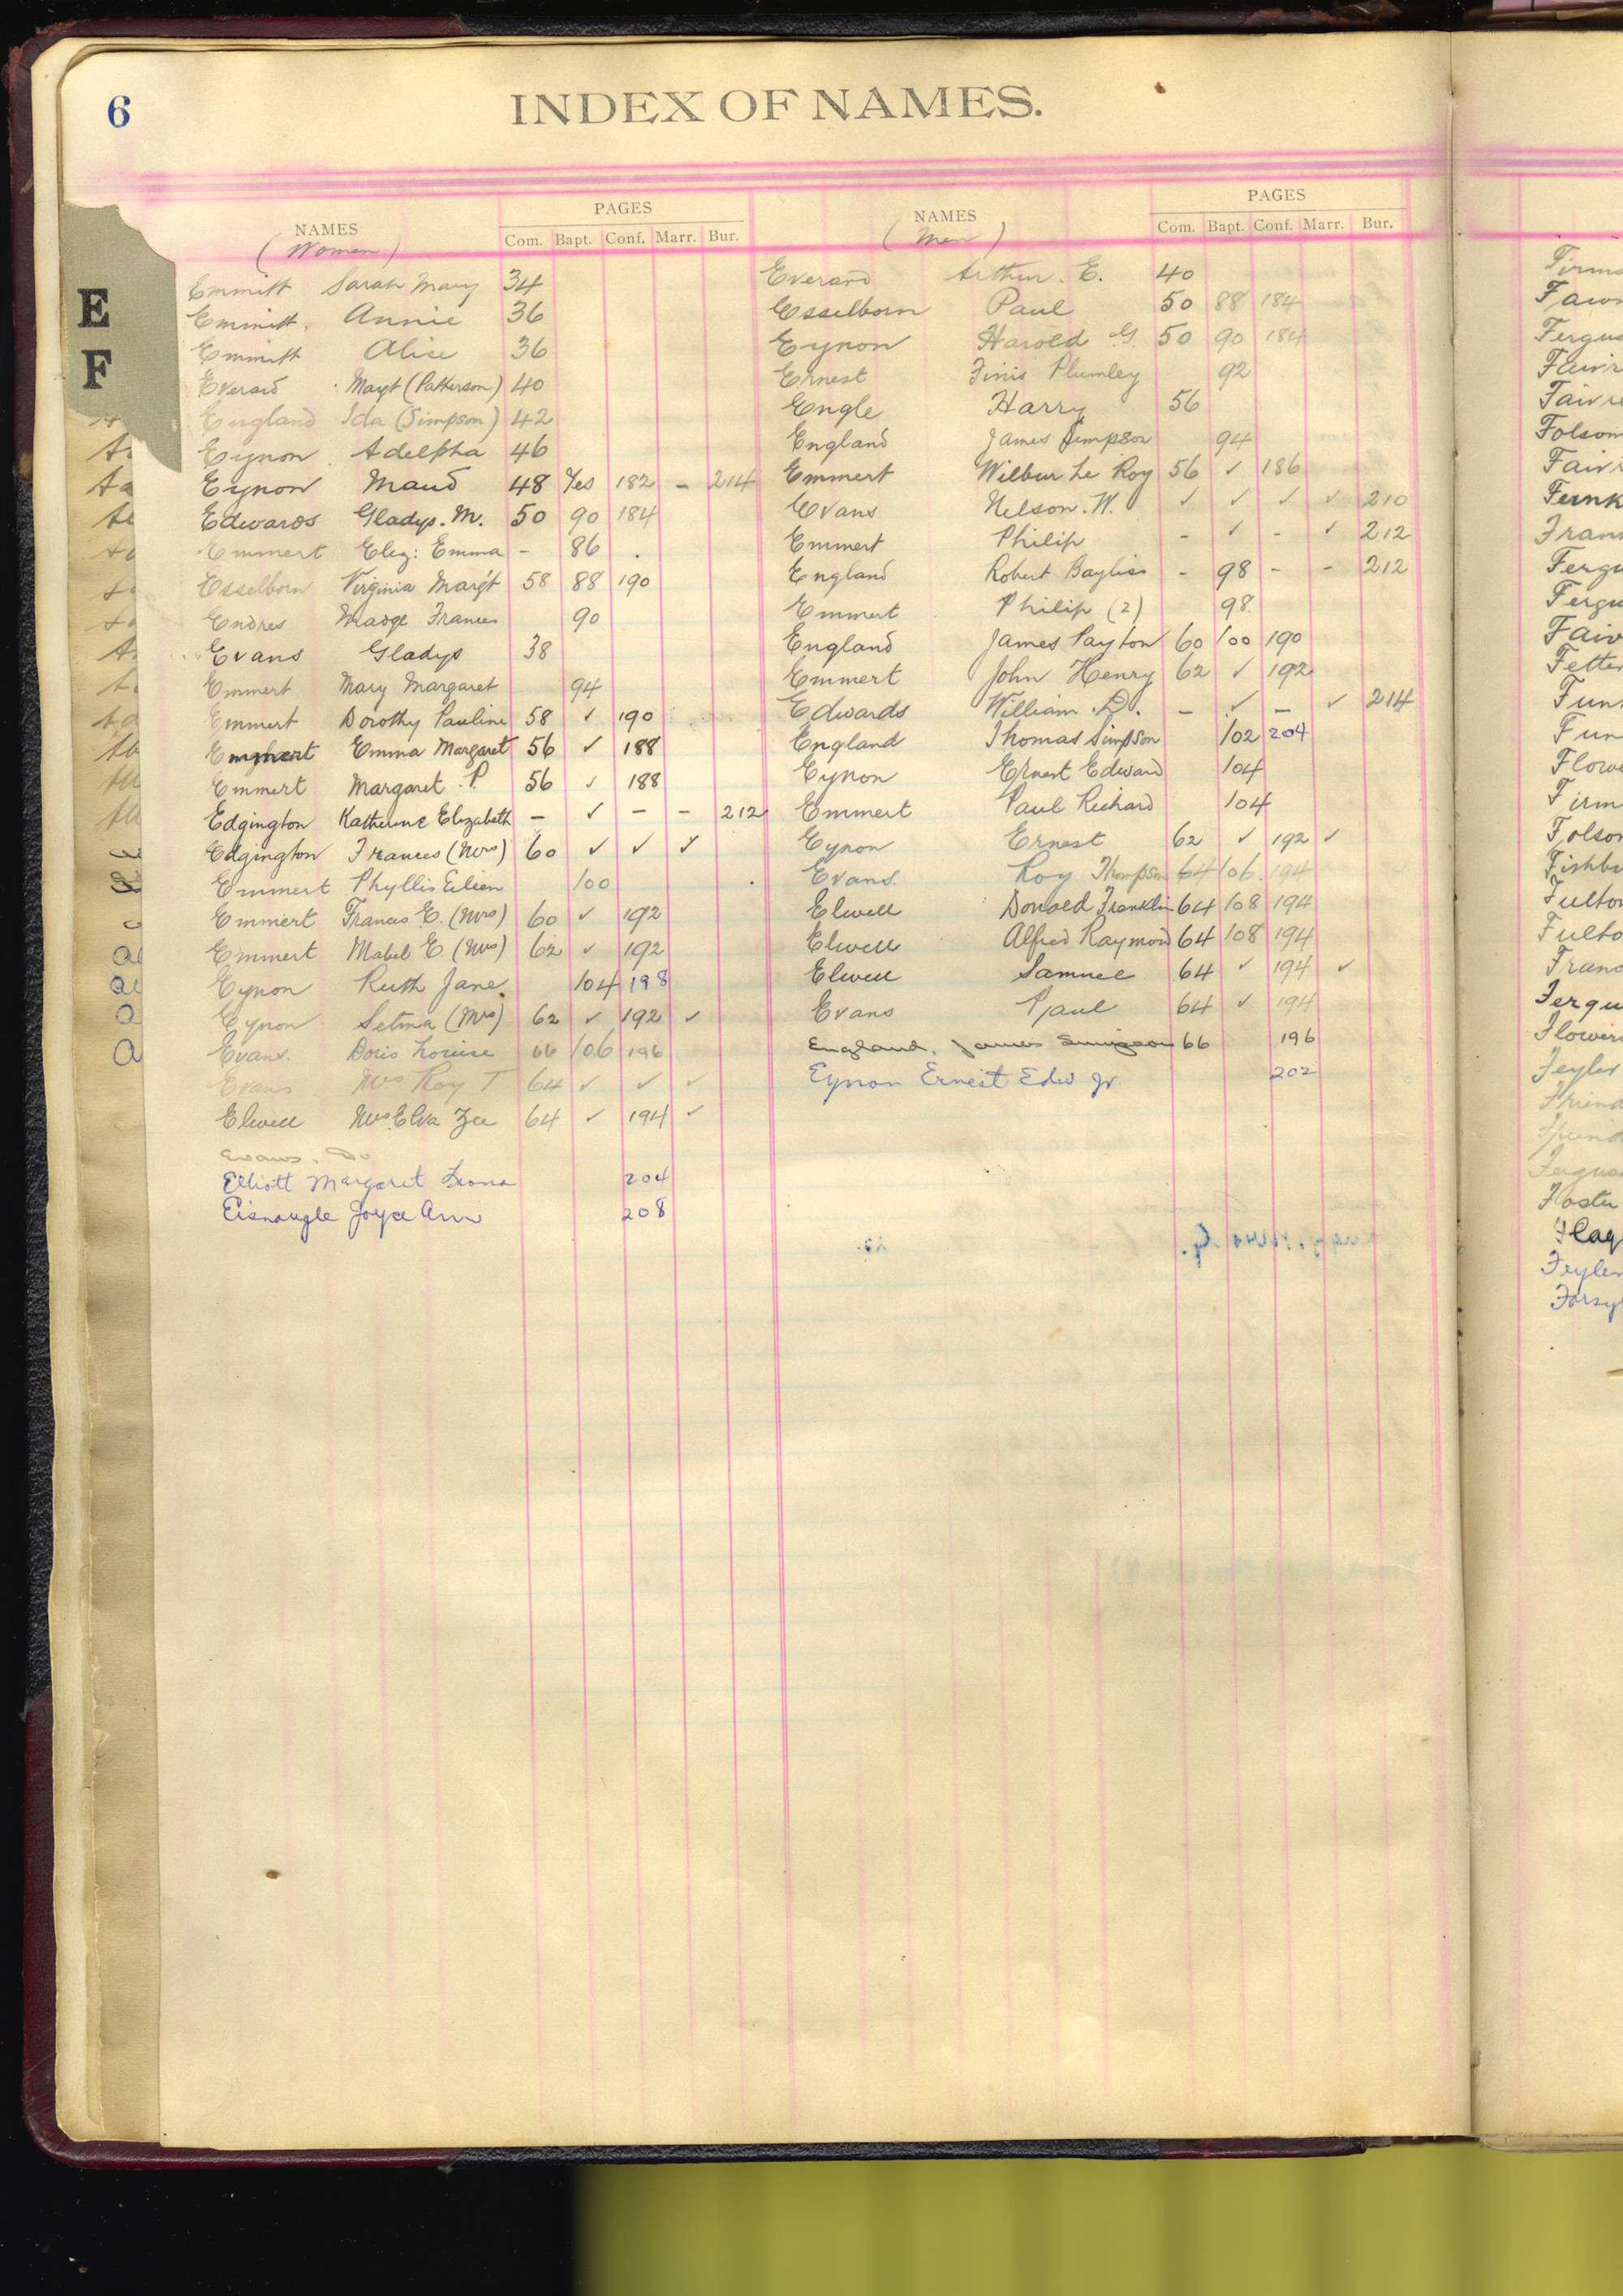 6
INDEX OF NAMES.
E
F
NAMES
(Women)
PAGES
Com. Bapt. Conf. Marr. Bur.
Emmitt Sarah Mary 34
Emmitt. Annie 36
Emmitt Alice 36
Everard Margt (Patterson) 40
England Ida (Simpson) 42
Eynon Adelpha 46
Eynon Maud 48 Yes 182 - 214
Edwards Gladys. M. 50 90 184
Emmert Eliz: Emma - 86
Esselborn Virginia Marg't 58 88 190
Endres Madge Frances 90
Evans Gladys 38
Emmert Mary Margaret 94
Emmert Dorothy Pauline 58 ✓ 190
Emmert Emma Margaret 56 ✓ 188
Emmert Margaret P. 56 ✓ 188
Edgington Katherine Elizabeth - ✓ - - 212
Edgington Frances (Mrs) 60 ✓ ✓ ✓
Emmert Phyllis Eileen 100
Emmert Frances E. (Mrs) 60 ✓ 192
Emmert Mabel E. (Mrs) 62 ✓ 192
Eynon Ruth Jane 104 198
Eynon Selma (Mrs) 62 ✓ 192 ✓
Evans. Doris Louise 66 106 196
Evans Mrs Roy T 64 ✓ ✓ ✓
Elwell Mrs Elva Zee 64 ✓ 194 ✓
Evans.
Elliott Margaret Leona 204
Eisnaugle Joyce Ann 208
NAMES
(Men)
PAGES
Com. Bapt. Conf. Marr. Bur.
Everard Arthur. E. 40
Esselborn Paul 50 88 184
Eynon Harold G. 50 90 184
Ernest Finis Plumley 92
Engle Harry 56
England James Simpson 94
Emmert Wilbur Le Roy 56 ✓ 186
Evans Nelson. W. ✓ ✓ ✓ ✓ 210
Emmert Philip - ✓ - ✓ 212
England Robert Bayliss - 98 - - 212
Emmert Philip (2) 98.
England James Payton 60 100 190
Emmert John Henry 62 ✓ 192
Edwards William. D. - ✓ - ✓ 214
England Thomas Simpson 102 204
Eynon Ernest Edward 104
Emmert Paul Richard 104
Eynon Ernest 62 ✓ 192 ✓
Evans. Roy Thompson 64 106. 194
Elwell Donald Franklin 64 108 194
Elwell Alfred Raymond 64 108 194
Elwell Samuel 64 ✓ 194 ✓
Evans Paul 64 ✓ 194
England, James Simpson 66 196
Eynon Ernest Edw Jr. 202